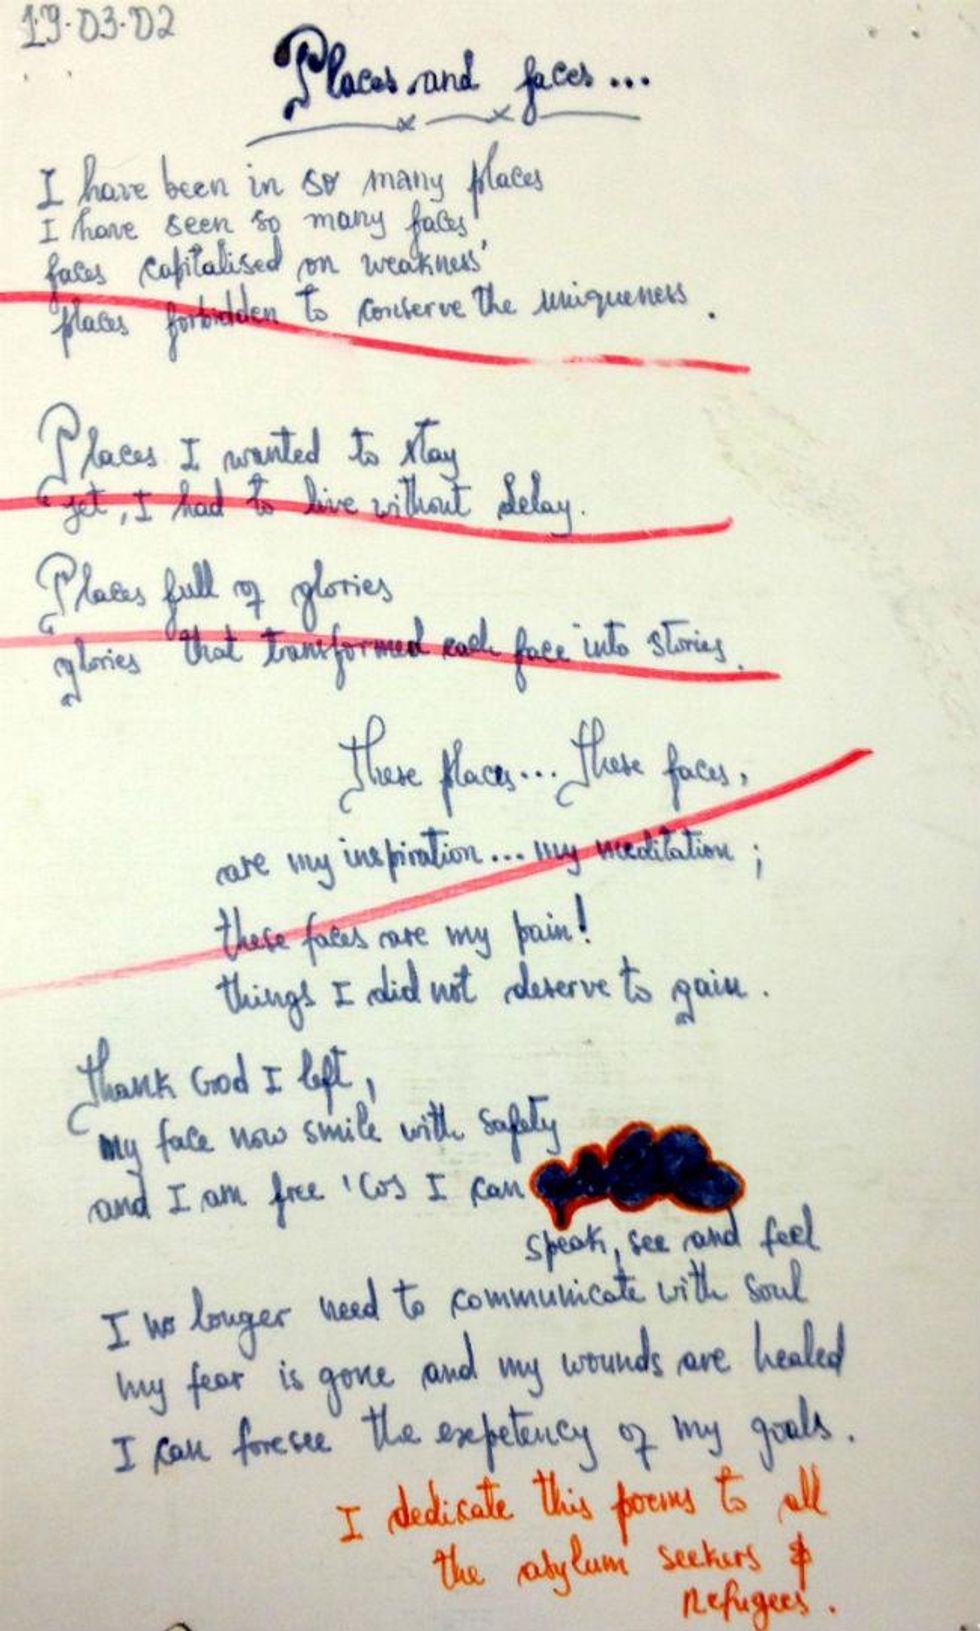 19.03.02
Places and faces...
I have been in so many places
I have seen so many faces
faces capitalised on weakness'
places forbidden to conserve the uniqueness.
Places I wanted to stay
yet, I had to live without delay.
Places full of glories
glories that transformed each face into stories.
These places... These faces,
are my inspiration... my meditation;
these faces are my pain!
things I did not deserve to gain.
Thank God I left,
my face now smile with safety
and I am free 'Cos I can
speak, see and feel
I no longer need to communicate with soul
my fear is gone and my wounds are healed
I can foresee the expetency of my goals.
I dedicate this poems to all
the asylum seekers &
Refugees.